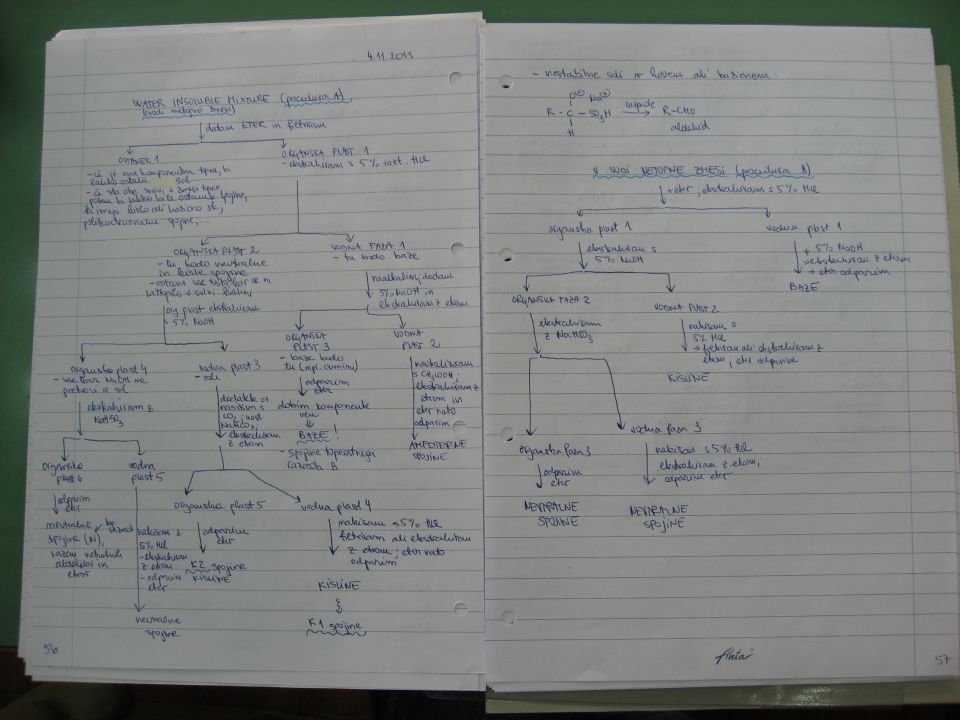 4.11.2011
WATER INSOLUBLE MIXTURE (procedura A)
(vodi netopne zmesi)
dodam ETER in filtriram
OSTANEK 1
- če je ena komponenta topna, bi
lahko ostala sol
- če sta obe snovi v zmesi topne,
potem bi lahko bile ostanek spojine,
ki imajo kislo ali bazično sk,
polifunkcionalne spojine,...
ORGANSKA PLAST 1
- ekstrahiram s 5% HCl
ORGANSKA PLAST 2
- tu bodo nevtralne
in kisle spojine
- ostane vse tisto kar se ni
raztopilo v
org. plast ekstrahiram
s 5% NaOH
VODNA FAZA 1
- tu bodo baze
naalkalim, dodam
5% NaOH in
ekstrahiram z etrom
ORGANSKA
PLAST 3
- baze bodo
tu (npr. amini)
odparim
eter
dobim komponente
ven
BAZE!
- spojine topnostnega
razreda B
VODNA
PLAST 2
nevtraliziram
s CH3COOH;
ekstrahiram z
etrom in
eter nato
odparim
AMFOTERNE
SPOJINE
organska plast 4
- vse kar NaOH ne
pretvori v sol
ekstrahiram z
NaHSO3
vodna plast 3
- soli
nasitim s
CO2,
NaHCO3
ekstrahiram
z etrom
organska
plast 6
odparim
eter
nevtralne
spojine (N),
razen
aldehidov in
vodna
plast 5
nakisam z
5% HCl
- ekstrahiram
z etrom
- odparim
eter
nevtralne
spojine
organska plast 5
odparim
eter
K2 spojine
KISLINE
vodna plast 4
nakisam s 5% HCl
filtriram ali ekstrahiram
z etrom; eter nato
odparim
KISLINE
K1 spojine
56
- nestabilne soli v kislem ali bazičnem:
O⊖ Na⊕
R - C - SO3H → R-CHO
razpade
H
aldehid
V VODI NETOPNE ZMESI (procedura B)
+ eter, ekstrahiram s 5% HCl
organska plast 1
ekstrahiram s
5% NaOH
vodna plast 1
+ 5% NaOH
ekstrahiram z etrom
→ eter odparim
BAZE
ORGANSKA FAZA 2
ekstrahiram
z NaHSO3
VODNA PLAST 2
nakisam s
5% HCl
→ filtriram ali ekstrahiram z
etrom; eter odparim
KISLINE
organska faza 3
odparim
eter
NEVTRALNE
SPOJINE
vodna faza 3
nakisam s 5% HCl
ekstrahiram z etrom;
odparim eter
NEVTRALNE
SPOJINE
Akta
57